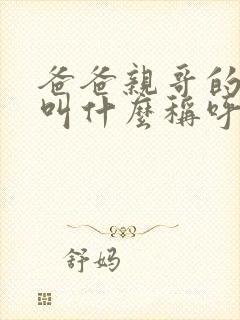 爸爸親哥的
叫什麼稱呼
舒妈